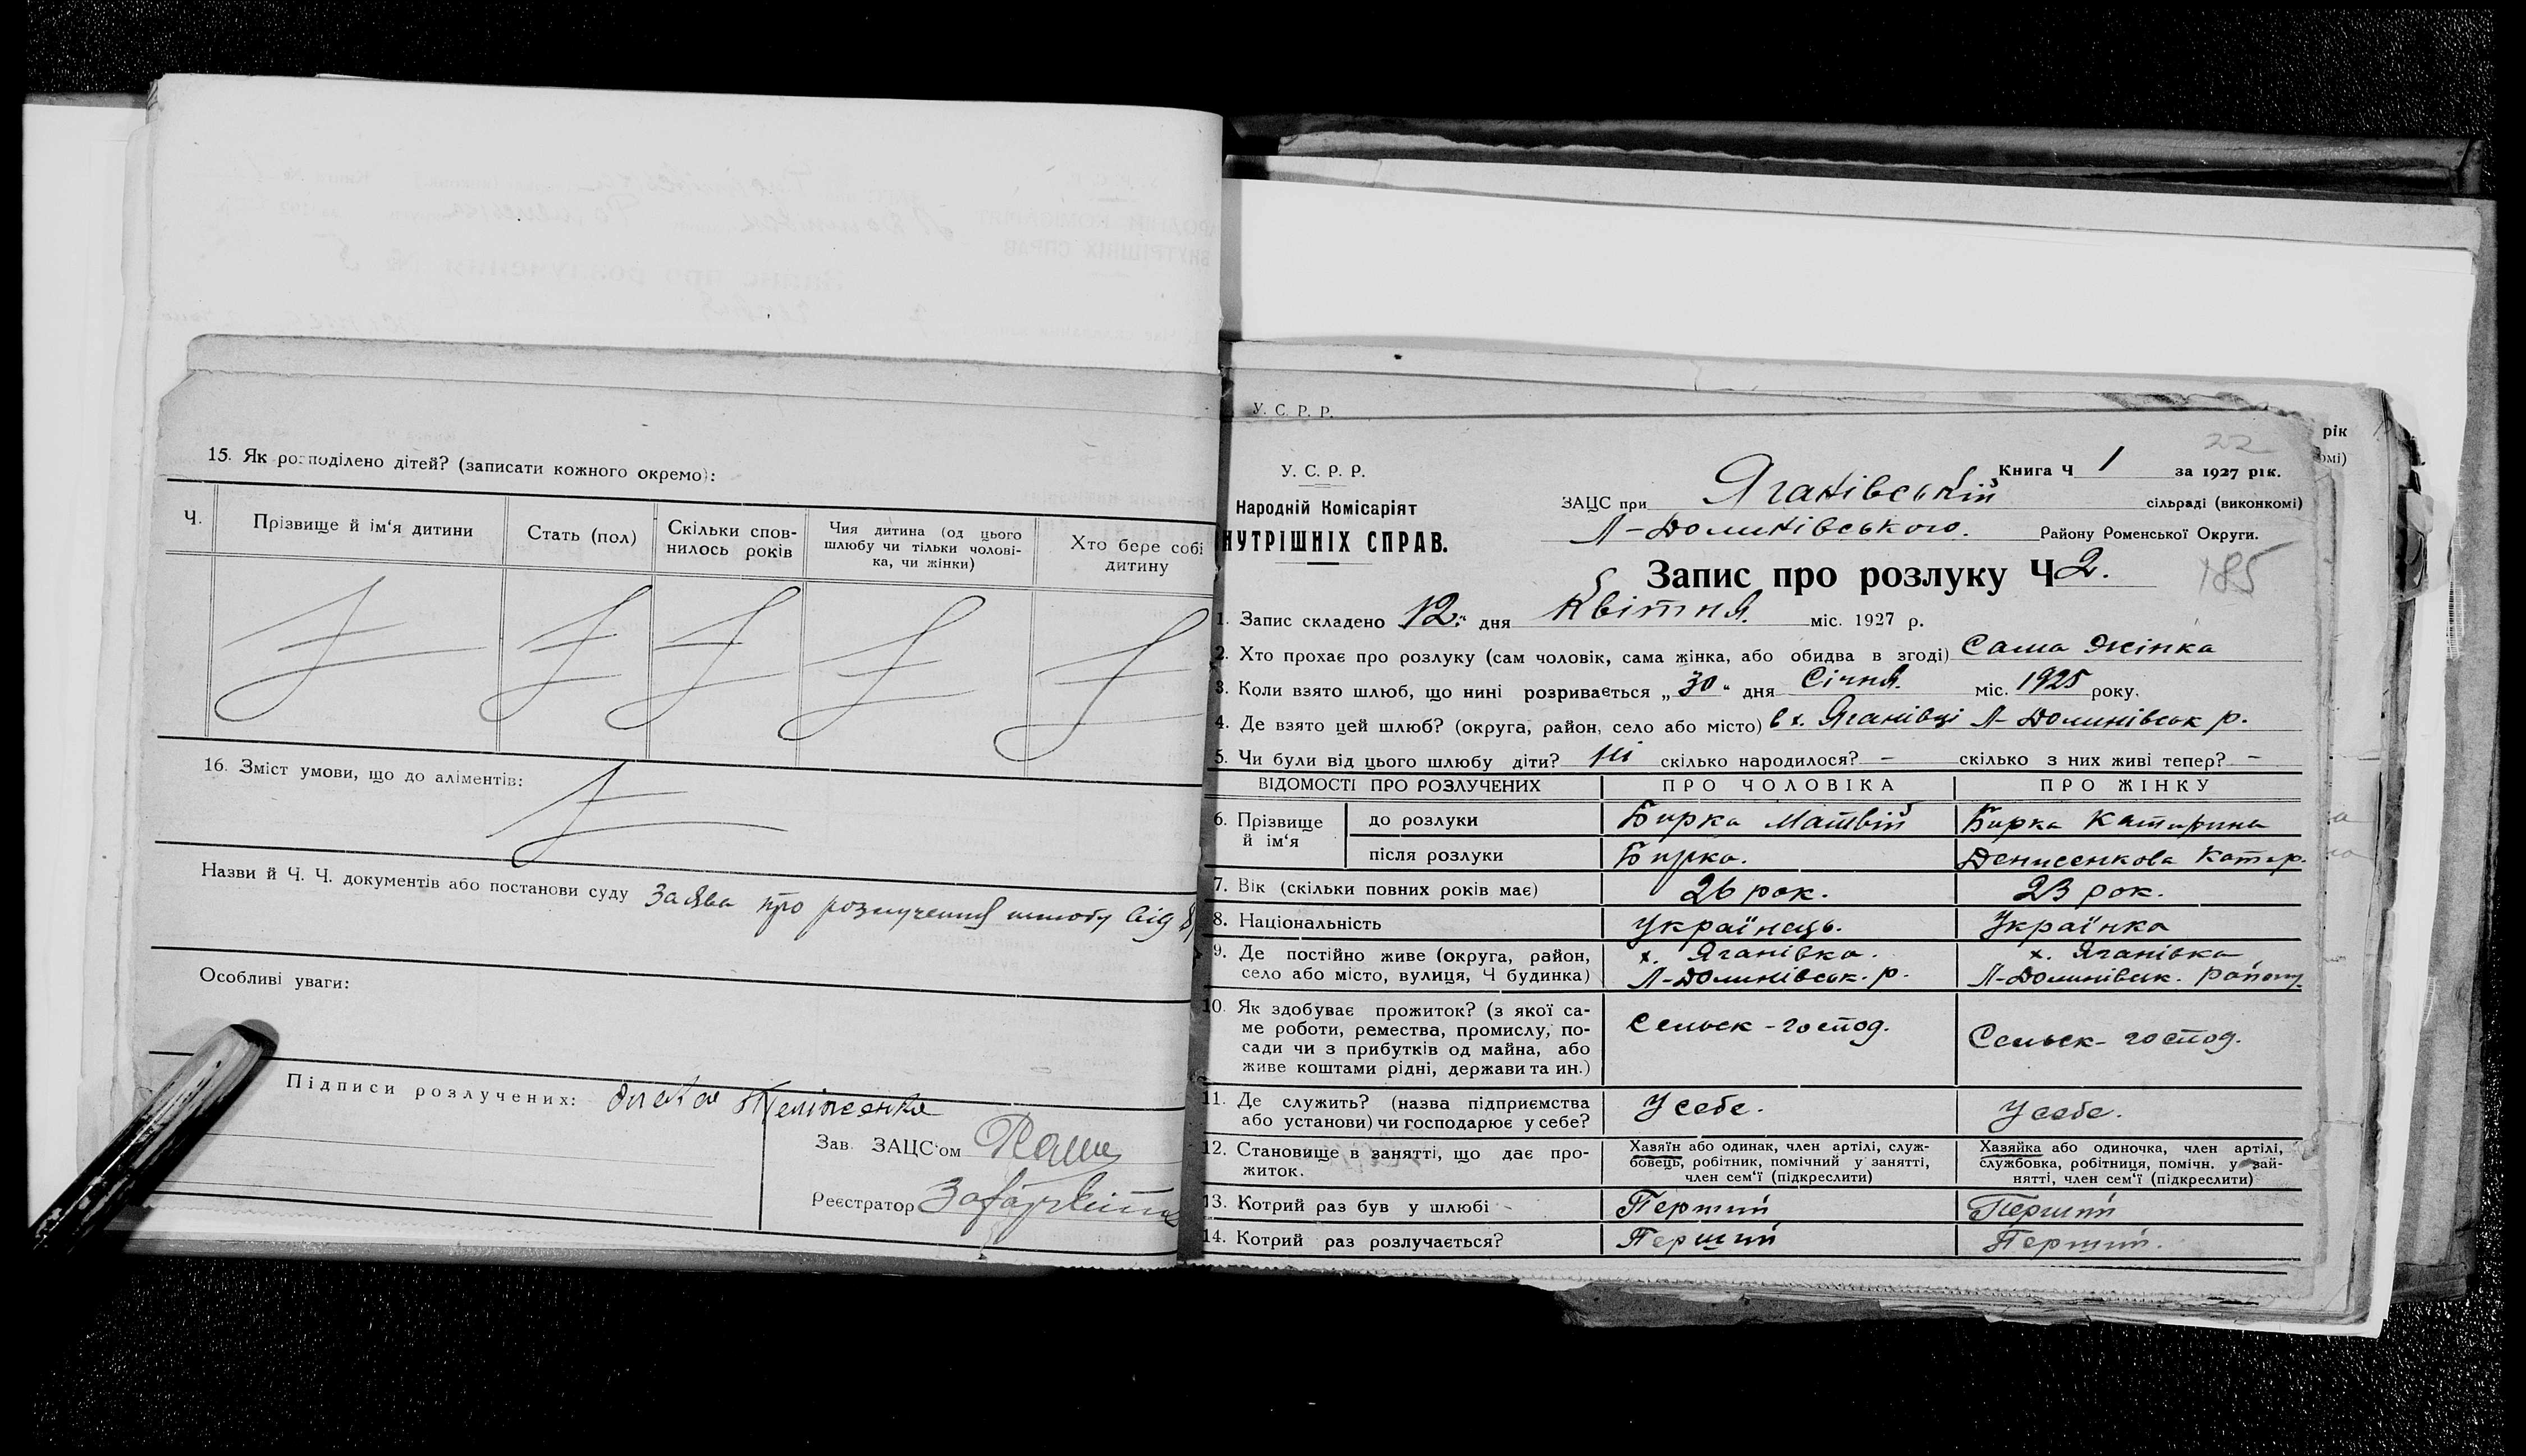 15. Як розподілено дітей? (записати кожного окремо):
Ч.
Прізвище й ім‘я дитини
Стать (пол)
Скільки спов-
нилось років
Чия дитина (од цього
шлюбу чи тільки чолові-
ка, чи жінки)
Хто бере собі
дитину
16. Зміст умови, що до аліментів:
Назви й Ч. Ч. документів або постанови суду Заява про розлучення шлюбу від
Особливі уваги:
Підписи розлучених:
Зав. ЗАЦС‘ом
Реєстратор
У. С. Р. Р.
рік
омі)
22
У. С. Р. Р.
Народній Комісаріят
НУТРІШНІХ СПРАВ.
Книга Ч 1 за 1927 рік.
ЗАЦС при Яганівській сільраді (виконкомі)
Л-Долинівського. Району Роменської Округи.
Запис про розлуку Ч 2.
185
1. Запис складено 12 " дня Квітня. міс. 1927 р.
2. Хто прохає про розлуку (сам чоловік, сама жінка, або обидва в згоді) Сама Жінка
3. Коли взято шлюб, що нині розривається „ 30 “ дня Січня. міс. 1925 року.
4. Де взято цей шлюб? (округа, район, село або місто) в х. Яганівці Л-Долинівськ р.
5. Чи були від цього шлюбу діти? Ні скілько народилося? — скілько з них живі тепер? —
ВІДОМОСТІ ПРО РОЗЛУЧЕНИХ
ПРО ЧОЛОВІКА
ПРО ЖІНКУ
6. Прізвище
й ім‘я
до розлуки
Бирка Матвій
Бирка Катирина
після розлуки
Бирка.
Денисенкова Катер.
7. Вік (скільки повних років має)
26 рок.
23 рок.
8. Національність
Українець.
Українка
9. Де постійно живе (округа, район,
село або місто, вулиця, Ч будинка)
х. Яганівка.
Л-Долинівськ. р.
х. Яганівка
Л-Долинівськ. району
10. Як здобуває прожиток? (з якої са-
ме роботи, ремества, промислу, по-
сади чи з прибутків од майна, або
живе коштами рідні, держави та ин.)
Сельск-господ.
Сельск-господ.
11. Де служить? (назва підприємства
або установи) чи господарює у себе?
У себе.
У себе.
12. Становище в занятті, що дає про-
житок.
Хазяїн або одинак, член артілі, служ-
бовець, робітник, помічний у занятті,
член сем‘ї (підкреслити)
Хазяйка або одиночка, член артілі,
службовка, робітниця, помічн. у зай-
нятті, член сем‘ї (підкреслити)
13. Котрий раз був у шлюбі
Перший
Перший
14. Котрий раз розлучається?
Перший
Перший.